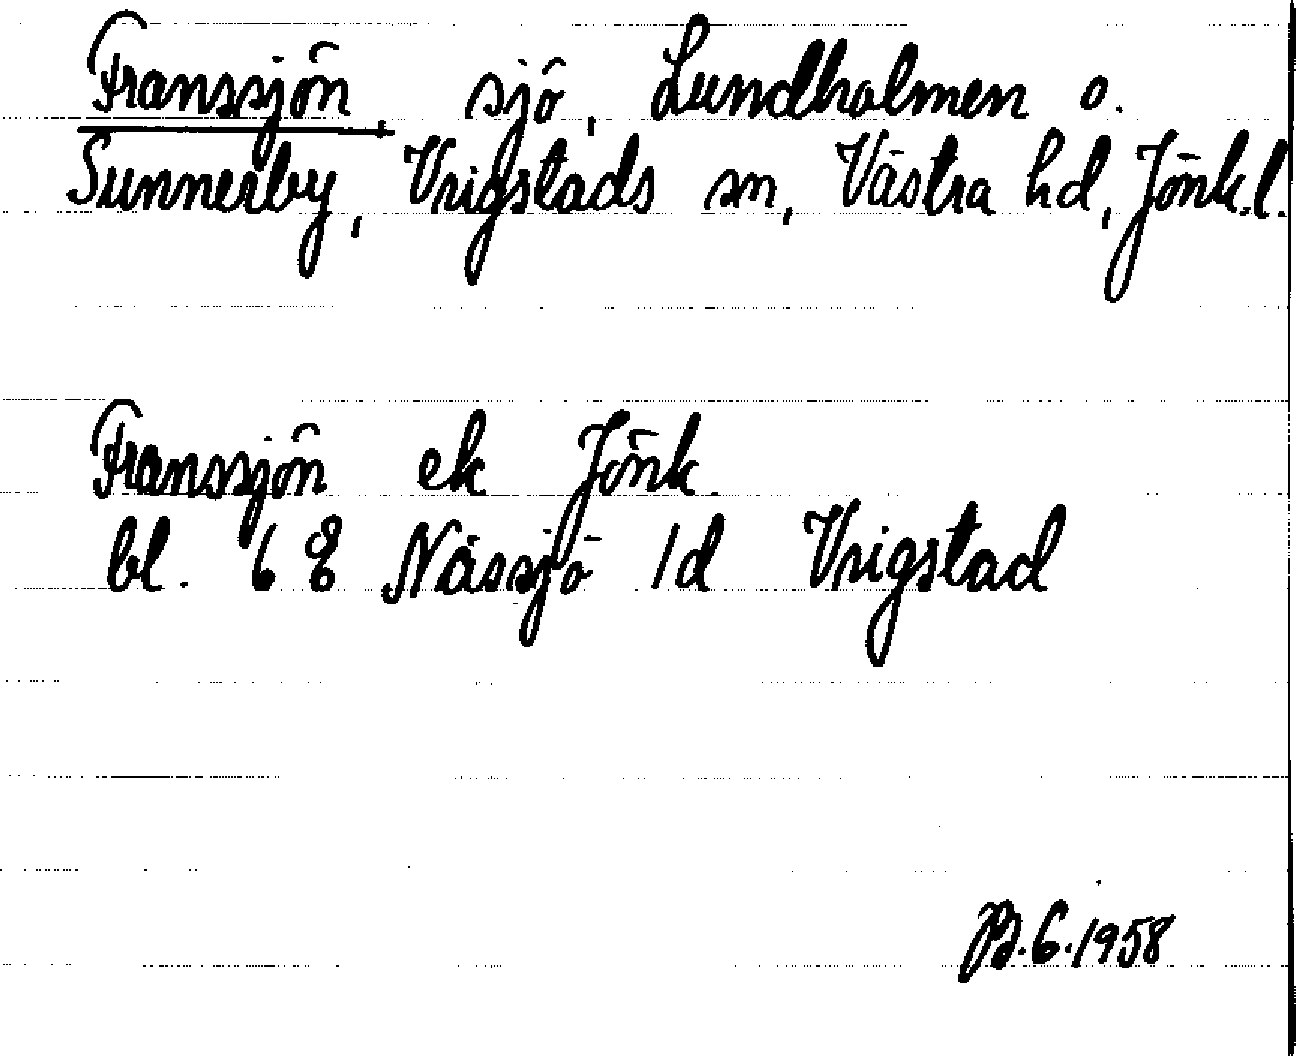 Franssjön, sjö, Lundholmen o.
Sunnerby, Vrigstads sn, Västra hd, Jönk.l.
Franssjön ek Jönk.
bl. 6 E Nässjö 1d Vrigstad
B.G.1958